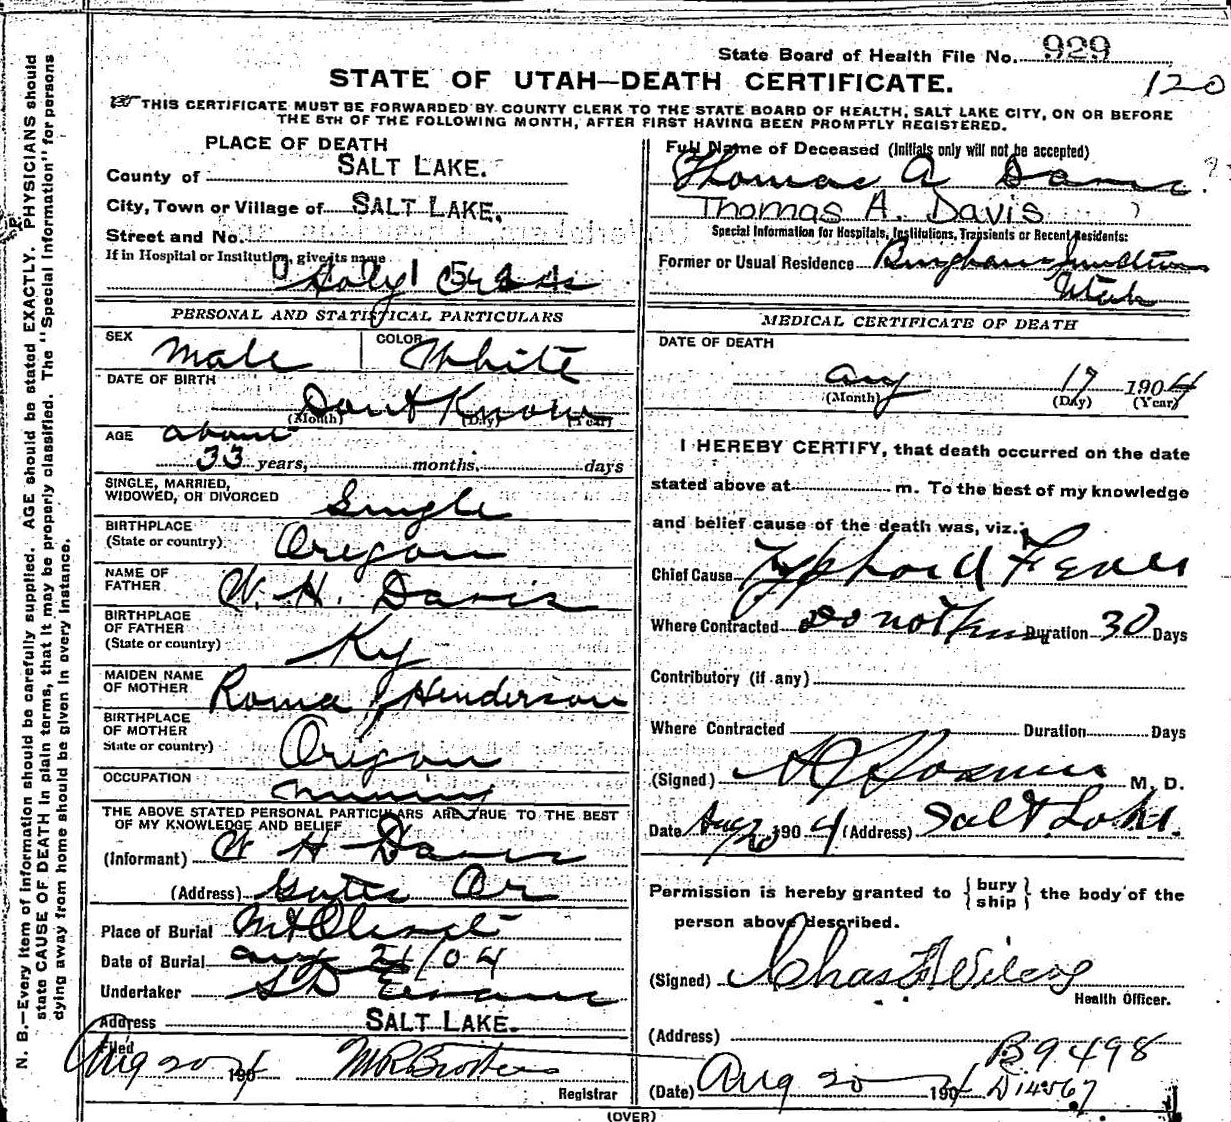 State Board of Health File No. 929
120
STATE OF UTAH—DEATH CERTIFICATE.
THIS CERTIFICATE MUST BE FORWARDED BY COUNTY CLERK TO THE STATE BOARD OF HEALTH, SALT LAKE CITY, ON OR BEFORE
THE 5TH OF THE FOLLOWING MONTH, AFTER FIRST HAVING BEEN PROMPTLY REGISTERED.
PLACE OF DEATH
County of SALT LAKE.
City, Town or Village of SALT LAKE.
Street and No.
If in Hospital or Institution, give its name
Holy Cross
PERSONAL AND STATISTICAL PARTICULARS
SEX Male COLOR White
DATE OF BIRTH
Dont Know
(Month) (Day) (Year)
AGE about
33 years, months, days
SINGLE, MARRIED,
WIDOWED, OR DIVORCED Single
BIRTHPLACE
(State or country) Oregon
NAME OF
FATHER W. H. Davis
BIRTHPLACE
OF FATHER
(State or country) Ky
MAIDEN NAME
OF MOTHER Roma Henderson
BIRTHPLACE
OF MOTHER
State or country) Oregon
OCCUPATION
Mining
THE ABOVE STATED PERSONAL PARTICULARS ARE TRUE TO THE BEST
OF MY KNOWLEDGE AND BELIEF
(Informant) W H Davis
(Address) Or
Place of Burial Mt Olivet
Date of Burial Aug 21/04
Undertaker S D Evans
Address SALT LAKE.
Filed
Aug 20 1904
Registrar
Full Name of Deceased (Initials only will not be accepted)
Thomas A Davis.
Thomas A. Davis
Special Information for Hospitals, Institutions, Transients or Recent Residents:
Former or Usual Residence Bingham Junction
Utah
MEDICAL CERTIFICATE OF DEATH
DATE OF DEATH
Aug 17 1904
(Month) (Day) (Year)
I HEREBY CERTIFY, that death occurred on the date
stated above at m. To the best of my knowledge
and belief cause of the death was, viz.:
Chief Cause Typhoid Fever
Where Contracted Do not Know Duration 30 Days
Contributory (if any)
Where Contracted Duration Days
(Signed) M. D.
Date Aug 20 1904 (Address) Salt Lake.
Permission is hereby granted to {bury ship} the body of the
person above described.
(Signed) Chas F Wilcox
Health Officer.
(Address)
B9498
(Date) Aug 20 1904 D14567
(OVER)
N. B.—Every item of information should be carefully supplied. AGE should be stated EXACTLY. PHYSICIANS should
state CAUSE OF DEATH in plain terms, that it may be properly classified. The "Special Information" for persons
dying away from home should be given in every instance.